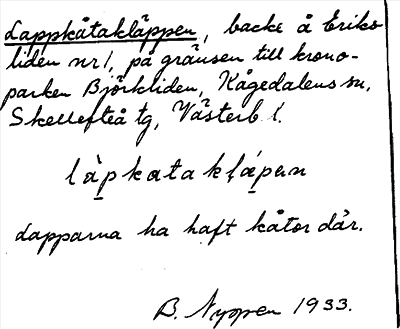 Lappkåtakläppen, backe å Eriks-
liden nr 1, på gränsen till krono-
parken Björkliden, Kågedalens sn,
Skellefteå tg, Västerb. l.
làpkatakļápən
Lapparna ha haft kåtor där.
B. Nyppen 1933.